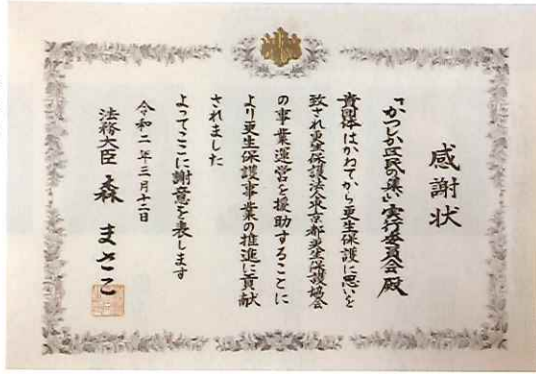 感謝状
「かつしか区民の集い」実行委員会 殿
貴団体はかねてから更生保護に思いを
致され更生保護法人東京都更生保護協会
の事業運営を援助することに
より更生保護事業の推進に貢献
されました
よってここに謝意を表します
令和二年三月十二日
法務大臣 森 まさこ